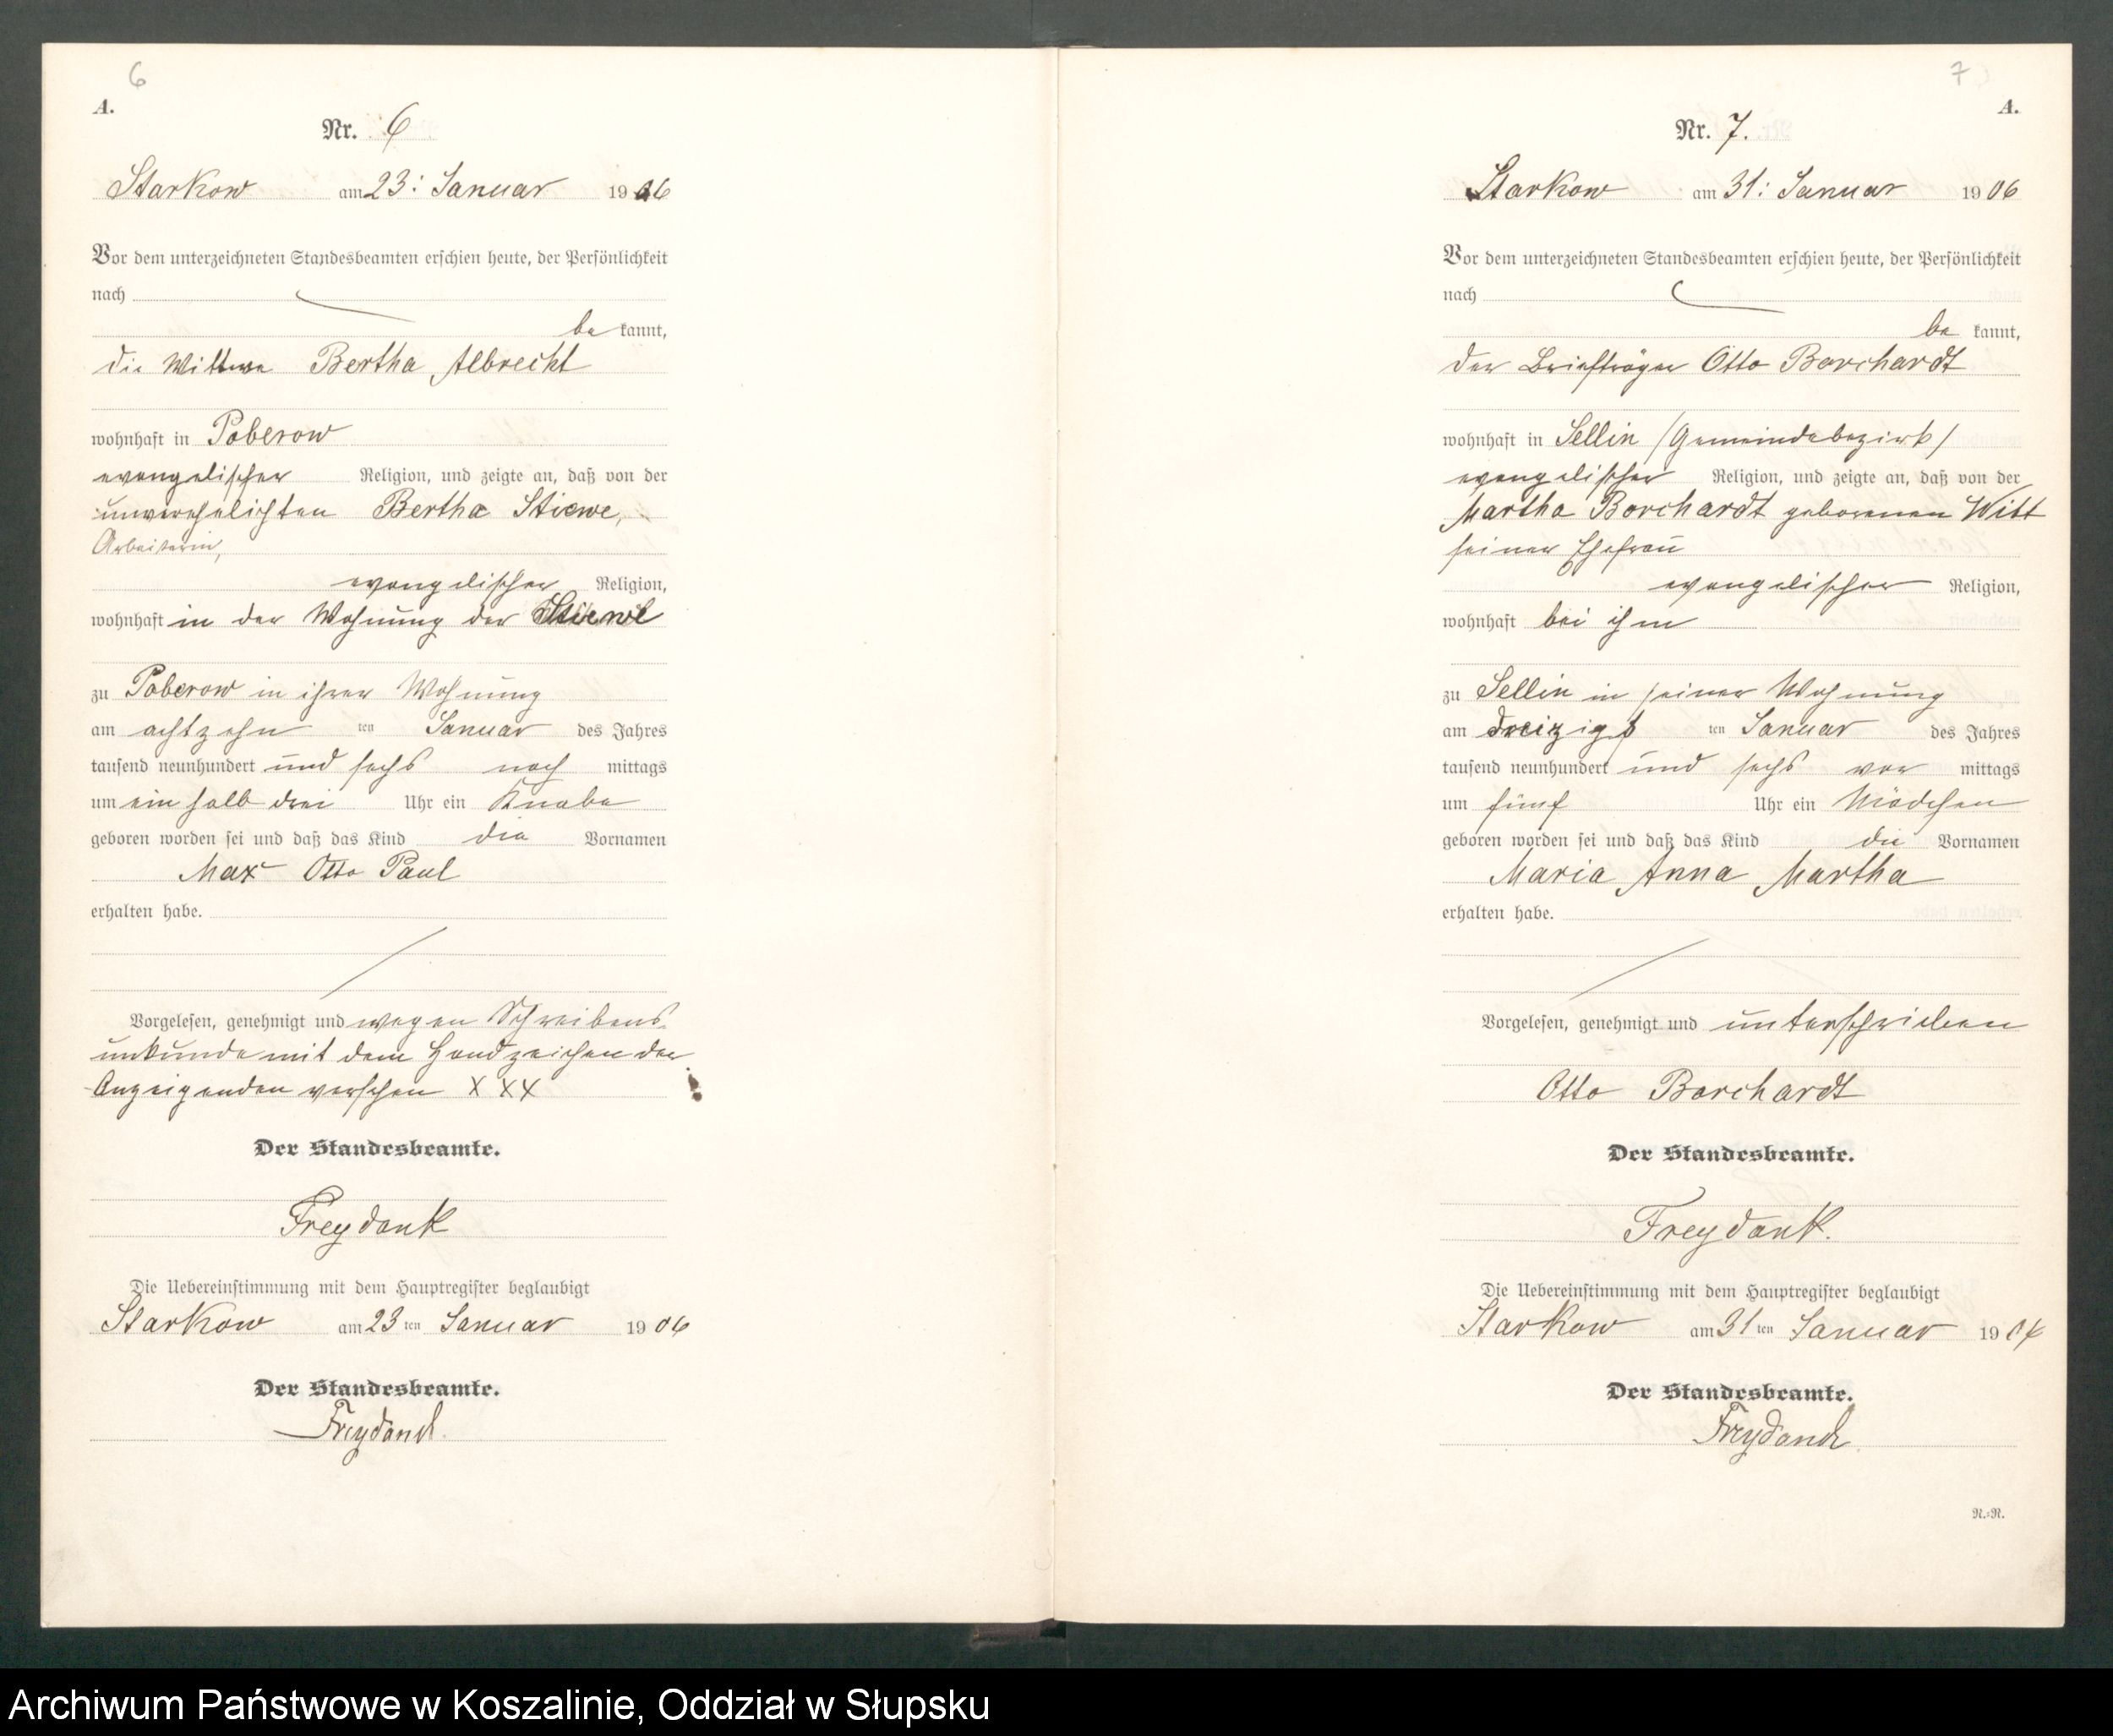 6
A.
Nr. 6
Starkow am 23: Januar 1906
Vor dem unterzeichneten Standesbeamten erschien heute, der Persönlichkeit
nach
be kannt,
die Wittwe Bertha Albrecht
wohnhaft in Poberow
evangelischer Religion, und zeigte an, daß von der
unverehelichten Bertha Stiewe,
Arbeiterin,
evangelischer Religion,
wohnhaft in der Wohnung der Stiewe
zu Poberow in ihrer Wohnung
am achtzehn ten Januar des Jahres
tausend neunhundert und sechs nach mittags
um ein halb drei Uhr ein Knabe
geboren worden sei und daß das Kind die Vornamen
Max Otto Paul
erhalten habe.
Vorgelesen, genehmigt und wegen Schreibens-
unkunde mit dem Handzeichen der
Anzeigenden versehen XXX
Der Standesbeamte.
Freydank
Die Uebereinstimmung mit dem Hauptregister beglaubigt
Starkow am 23 ten Januar 1906
Der Standesbeamte.
Freydank.
7
A.
Nr. 7.
Starkow am 31: Januar 1906
Vor dem unterzeichneten Standesbeamten erschien heute, der Persönlichkeit
nach
be kannt,
der Briefträger Otto Borchardt
wohnhaft in Sellin /Gemeindebezirk/
evangelischer Religion, und zeigte an, daß von der
Martha Borchardt geborenen Witt
seiner Ehefrau
evangelischer Religion,
wohnhaft bei ihm
zu Sellin in seiner Wohnung
am dreizigst ten Januar des Jahres
tausend neunhundert und sechs vor mittags
um fünf Uhr ein Mädchen
geboren worden sei und daß das Kind die Vornamen
Maria Anna Martha
erhalten habe.
Vorgelesen, genehmigt und unterschrieben
Otto Borchardt
Der Standesbeamte.
Freydank.
Die Uebereinstimmung mit dem Hauptregister beglaubigt
Starkow am 31 ten Januar 1906
Der Standesbeamte.
Freydank
R.=R.
Archiwum Państwowe w Koszalinie, Oddział w Słupsku